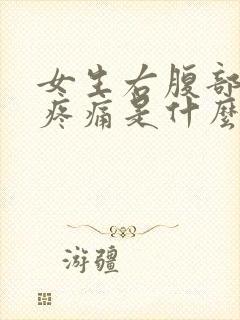 女生右腹部
疼痛是什麼
游疆